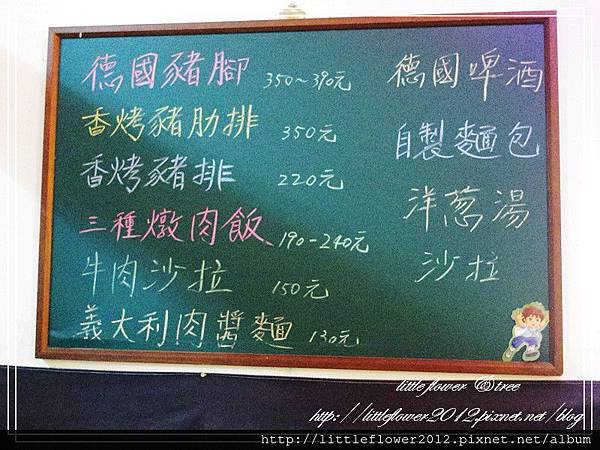 德國豬腳 350~390元
香烤豬肋排 350元
香烤豬排 220元
三種燉肉飯 190-240元
牛肉沙拉 150元
義大利肉醬麵 130元
德國啤酒
自製麵包
洋蔥湯
沙拉
little flower @ tree
http://littleflower2012.pixnet.net/blog
http://littleflower2012.pixnet.net/album